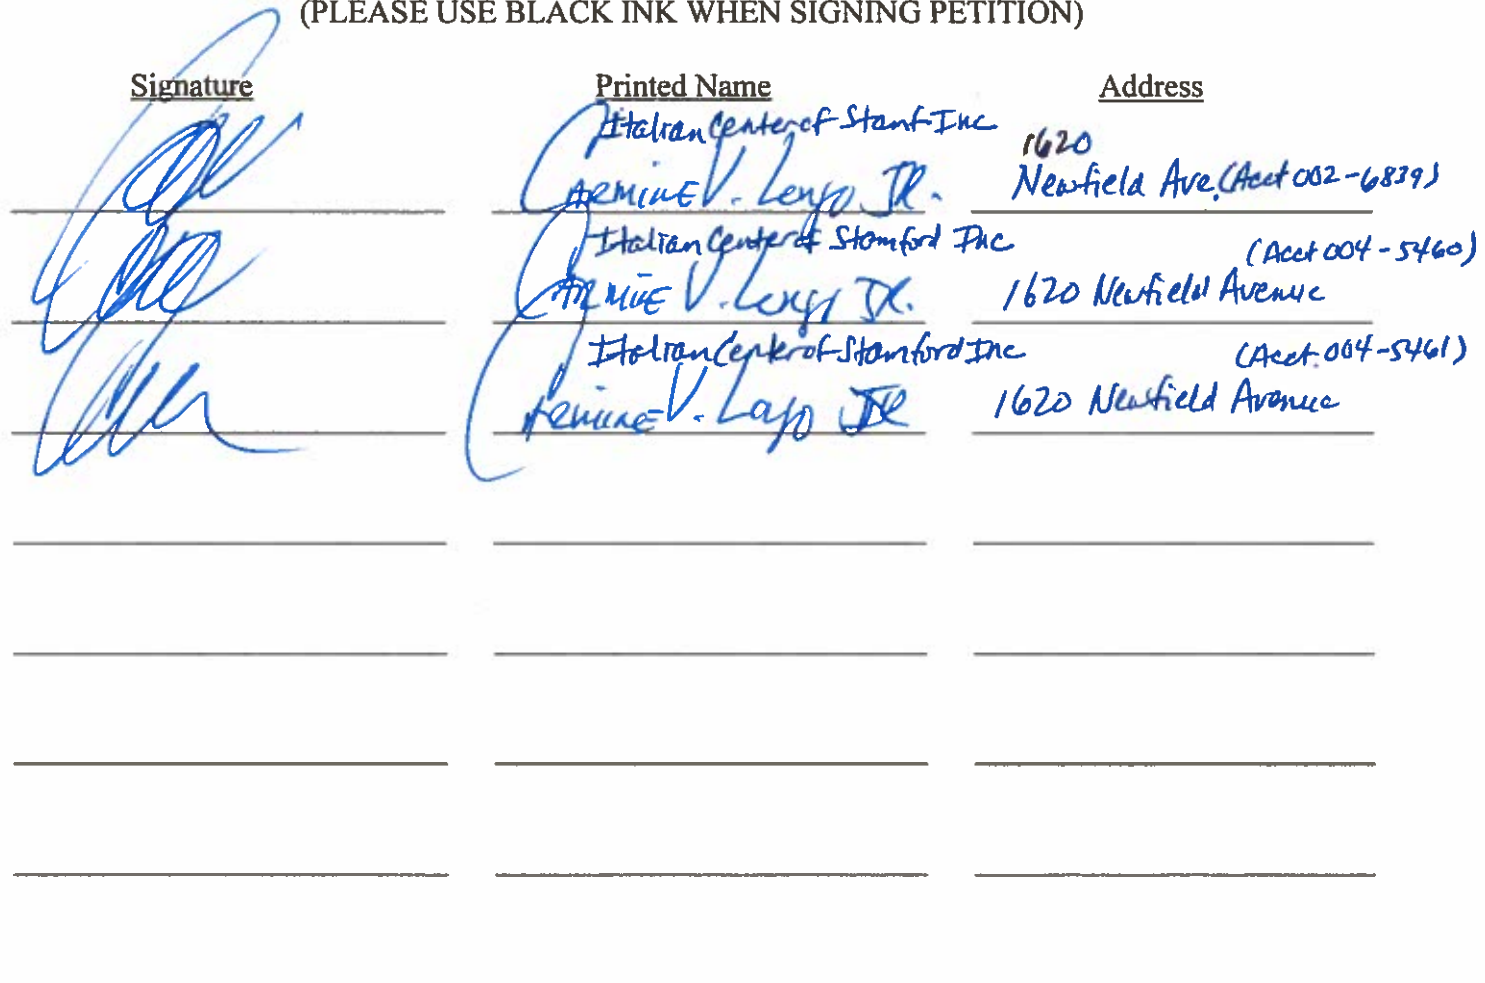 (PLEASE USE BLACK INK WHEN SIGNING PETITION)
Signature Printed Name Address
Italian Center of Stamf Inc 1620
Carmine V. Longo JR. Newfield Ave. (Acct 002-6839)
Italian Center of Stamford Inc (Acct 004-5460)
Carmine V. Longo JR. 1620 Newfield Avenue
Italian Center of Stamford Inc (Acct. 004-5461)
Carmine V. Longo JR 1620 Newfield Avenue